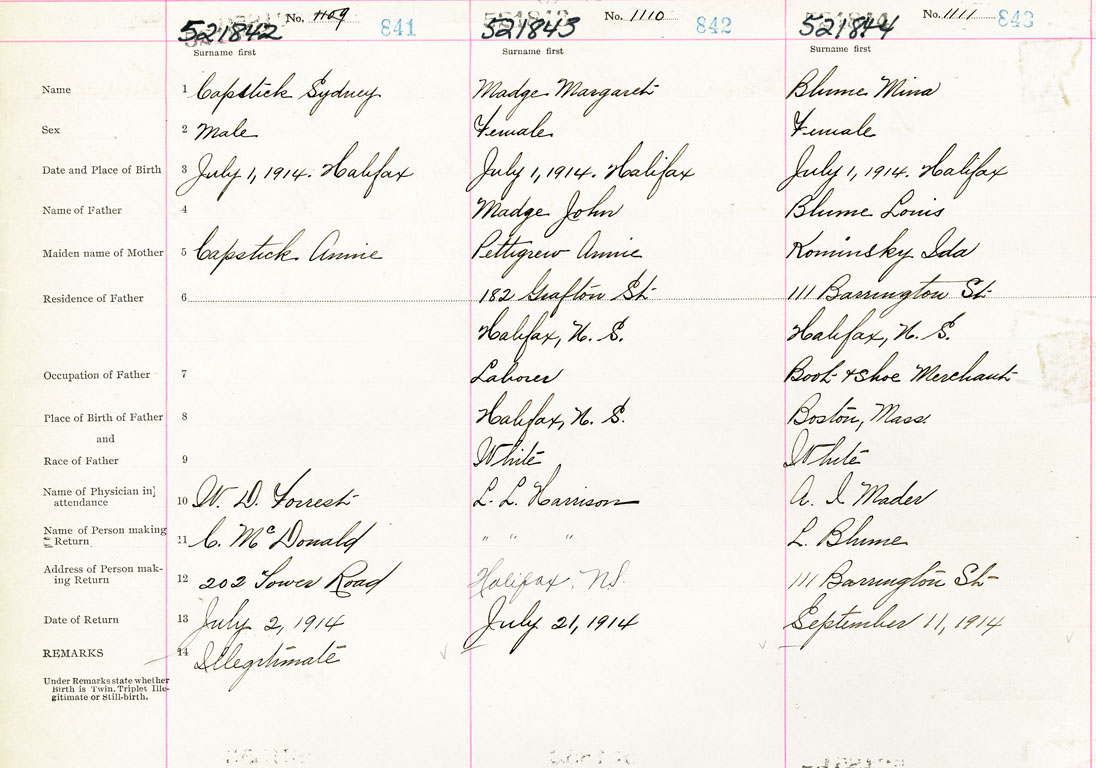 No. 1109 841 No. 1110 842 No. 1111 843
521842 521843 521844
Surname first Surname first Surname first
Name 1 Capstick Sydney Madge Margaret Blume Mina
Sex 2 Male Female Female
Date and Place of Birth 3 July 1, 1914. Halifax July 1, 1914. Halifax July 1, 1914. Halifax
Name of Father 4 Madge John Blume Louis
Maiden name of Mother 5 Capstick Annie Pettigrew Annie Kominsky Ida
Residence of Father 6 182 Grafton St 111 Barrington St
Halifax, N. S. Halifax, N. S.
Occupation of Father 7 Laborer Boot & Shoe Merchant
Place of Birth of Father 8 Halifax, N. S. Boston, Mass.
and
Race of Father 9 White White
Name of Physician in] attendance 10 W. D. Forrest L. L. Harrison A. I Mader
Name of Person making Return 11 C. McDonald " " " L. Blume
Address of Person mak-
ing Return 12 202 Tower Road Halifax, N.S. 111 Barrington St
Date of Return 13 July 2, 1914 July 21, 1914 September 11, 1914
REMARKS 14 Illegitimate
Under Remarks state whether
Birth is Twin, Triplet Ille-
gitimate or Still-birth.